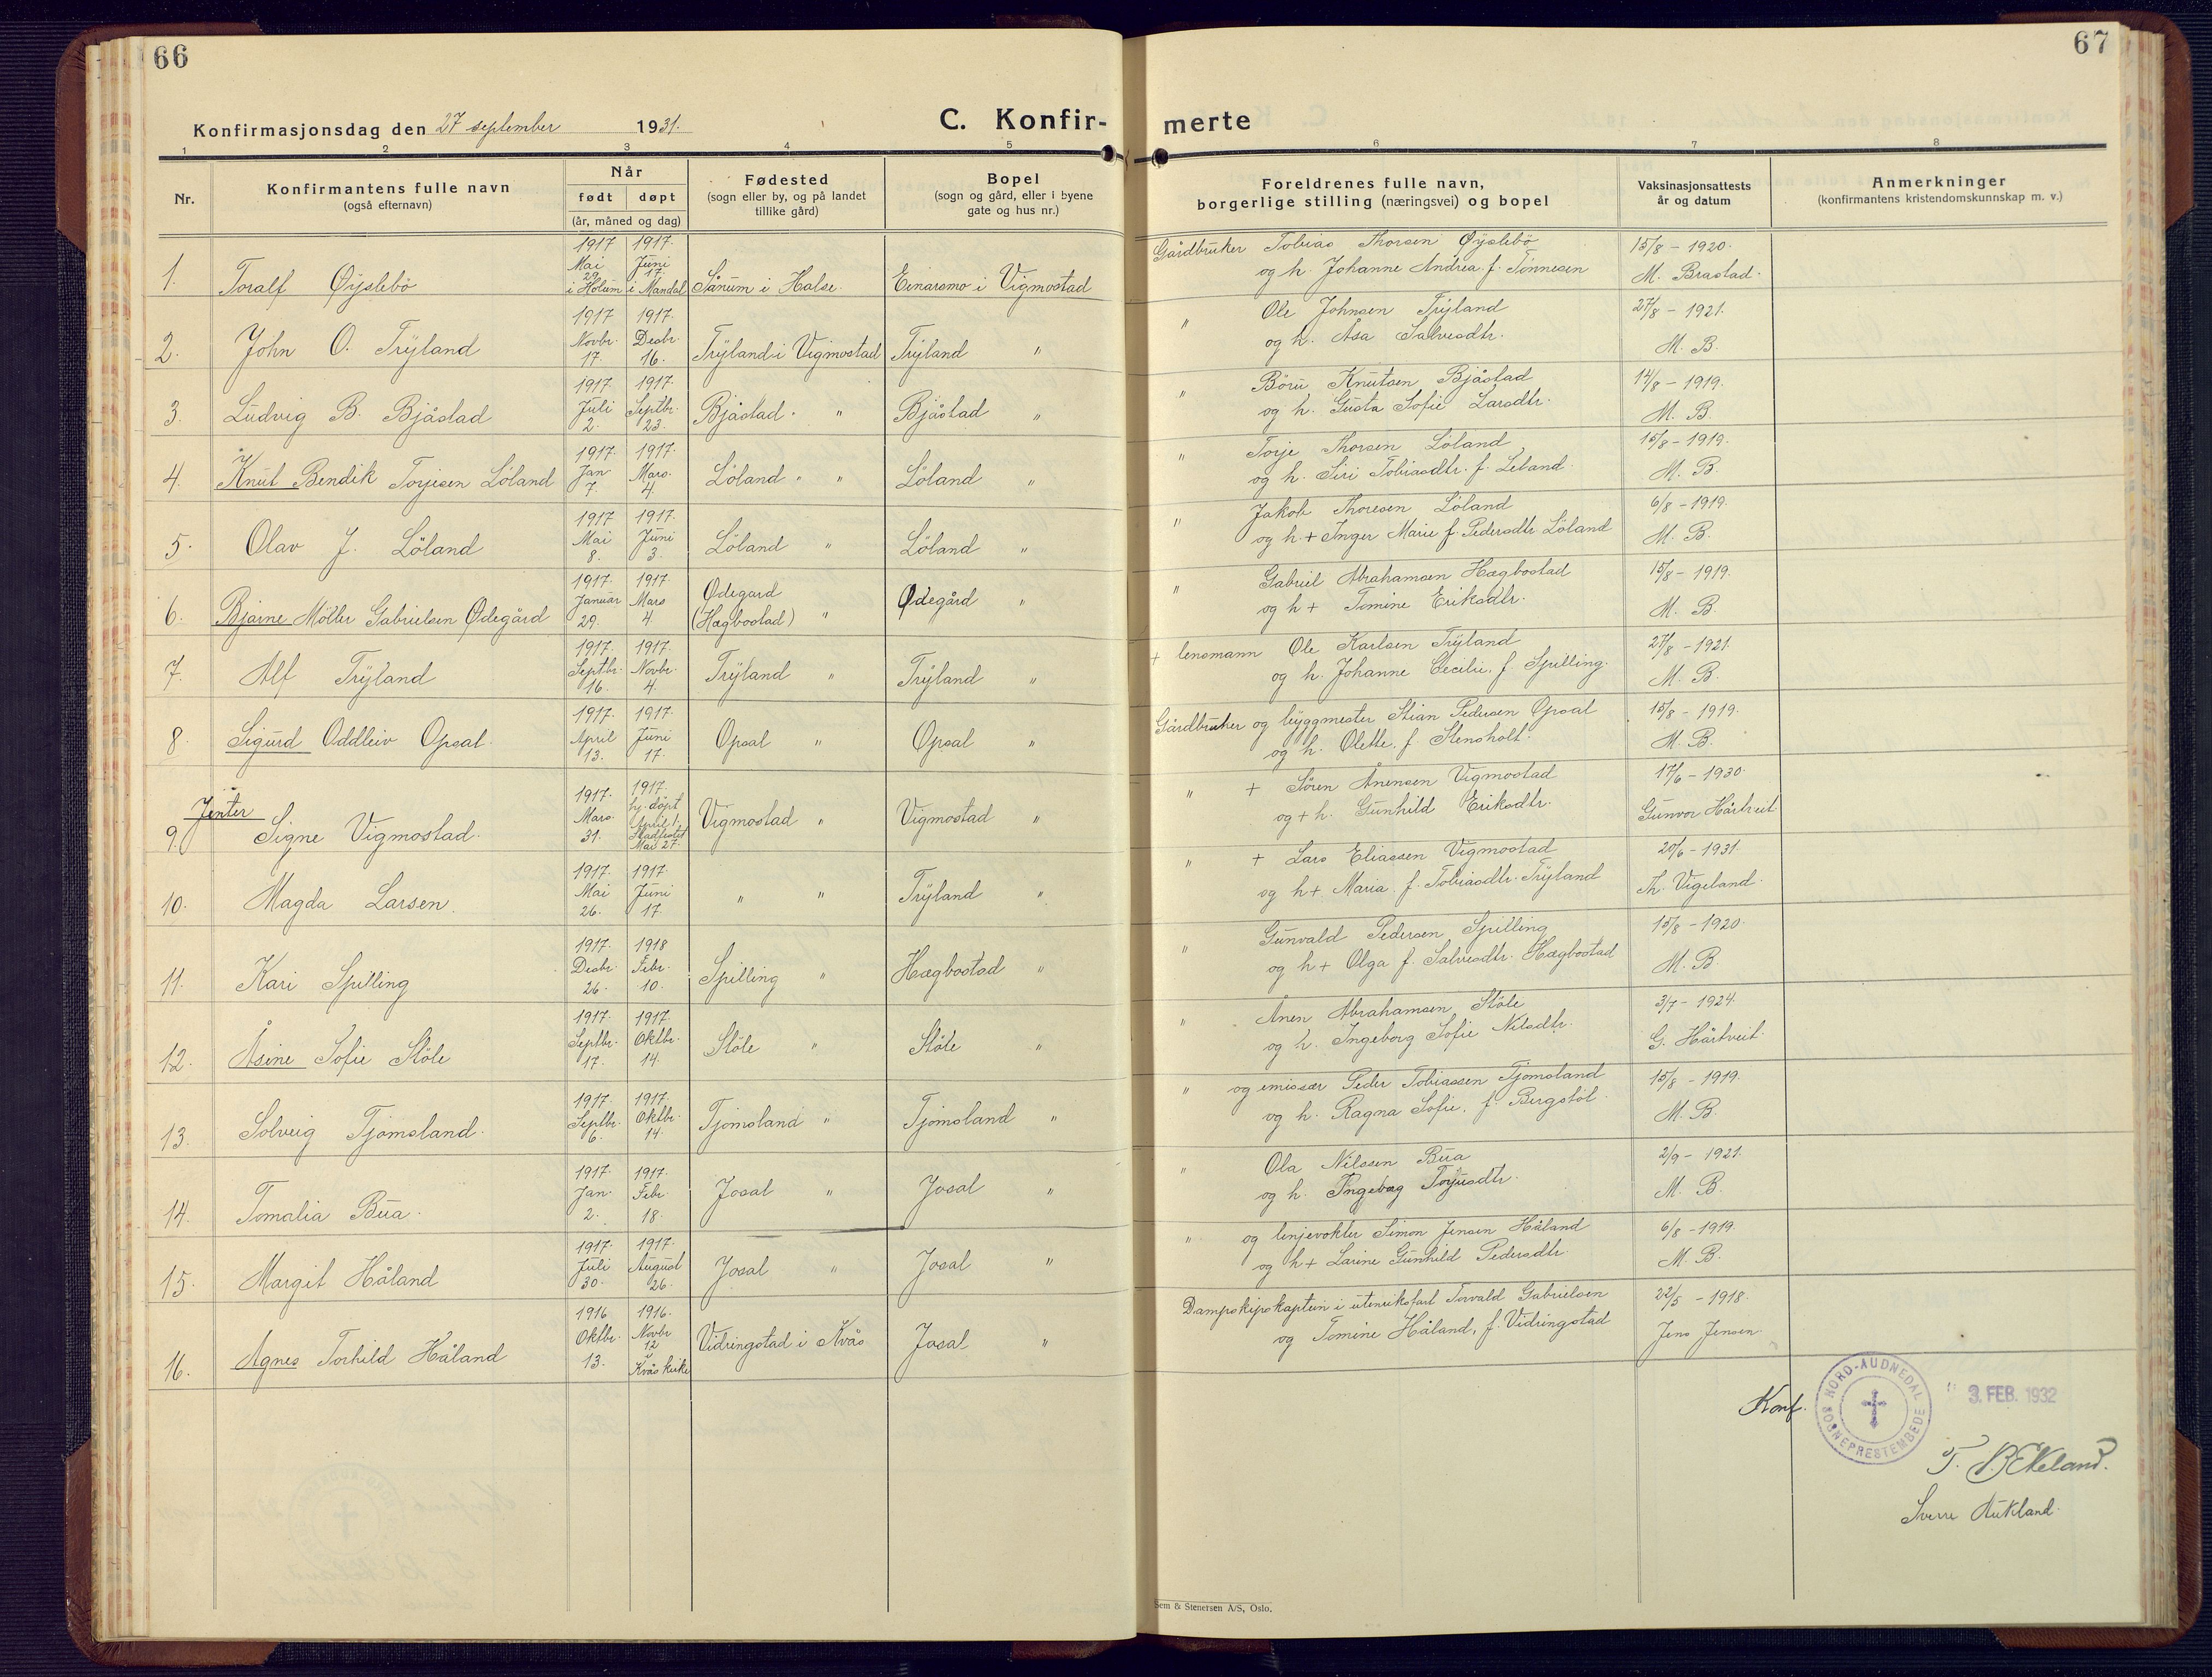 66
67
Konfirmasjonsdag den 27 september 1931.
C. Konfir-
merte
1 2 3 4 5 6 7 8
Nr.
Konfirmantens fulle navn
(også efternavn)
Når
født døpt
(år, måned og dag)
Fødested
(sogn eller by, og på landet
tillike gård)
Bopel
(sogn og gård, eller i byene
gate og hus nr.)
Foreldrenes fulle navn,
borgerlige stilling (næringsvei) og bopel
Vaksinasjonsattests
år og datum
Anmerkninger
(konfirmantens kristendomskunnskap m. v.)
1. Toralf Øyslebö
1917 Mai 29 i Holum
1917. Juni 17. i Mandal
Sånum i Halse.
Einarsmo i Vigmostad
Gårdbruker Tobias Thorsen Øyslebö
og h. Johanne Andrea f. Tönnesen
15/8 - 1920.
M. Brastad.
2. John O. Tryland
1917 Novbr. 17.
1917. Desbr. 16.
Tryland i Vigmostad
Tryland "
" Ole Johnsen Tryland
og h. Åsa Salvesdtr.
27/8 - 1921.
M. B.
3. Ludvig B. Bjåstad
1917. Juli 2.
1917. Septbr. 23.
Bjåstad. "
Bjåstad "
" Böru Knutsen Bjåstad
og h. Gusta Sofie Larsdtr.
14/8 - 1919.
M. B.
4. Knut Bendik Torjesen Löland
1917. Jan. 7.
1917. Mars. 4.
Löland " "
Löland "
" Torje Thorsen Löland
og h. Siri Tobiasdtr. f. Leland.
15/8 - 1919.
M. B.
5. Olav J. Löland
1917 Mai 8.
1917. Juni 3.
Löland "
Löland "
" Jakob Thoresen Löland
og h + Inger Marie f. Pedersdtr. Löland
6/8 - 1919.
M. B.
6. Bjarne Möller Gabrielsen Ødegård
1917. Januar 29.
1917. Mars 4.
Ødegard
(Hægbostad) "
Ødegård "
" Gabriel Abrahamsen Hægbostad
og h + Tomine Eriksdtr.
15/8 - 1919.
M. B.
7. Alf Tryland
1917. Septbr. 16.
1917. Novbr. 4.
Tryland "
Tryland "
+ lensmann Ole Karlsen Tryland
og h. Johanne Cecilie, f. Spilling.
27/8 - 1921.
M. B.
8. Sigurd Oddleiv Opsal.
1917. April 13.
1917. Juni 17.
Opsal "
Opsal "
Gårdbruker og byggmester Stian Pedersen Opsal
og h. Olette. f. Stensholt.
15/8 - 1919.
M. B.
Jenter
9. Signe Vigmostad.
1917. Mars 31.
1917. hj. döpt April 1. Stadfestet Mai 27.
Vigmostad "
Vigmostad "
" + Sören Ånensen Vigmostad
og + h. Gunhild Eriksdtr.
17/6 - 1930.
Gunvor Hårtveit
10. Magda Larsen.
1917. Mai 26.
1917. Juni 17.
" "
Tryland "
" + Lars Eliassen Vigmostad
og h + Maria f. Tobiasdtr. Tryland
20/6 - 1931.
Th. Vigeland.
11. Kari Spilling
1917. Desbr. 26.
1918 Febr. 10.
Spilling "
Hægbostad "
" Gunvald Pedersen Spilling
og h + Olga f. Salvesdtr. Hægbostad
15/8 - 1920.
M. B.
12. Åsine Sofie Stöle
1917. Septbr. 17.
1917. Oktbr. 14.
Stöle "
Stöle "
" Ånen Abrahamsen Stöle
og h. Ingeborg Sofie Nilsdtr.
3/7 - 1924.
G. Hårtveit.
13. Solveig Tjomsland.
1917. Septbr. 6.
1917. Oktbr. 14.
Tjomsland "
Tjomsland "
" og emissær Peder Tobiassen Tjomsland
og h. Ragna Sofie, f. Bergstöl.
15/8 - 1919.
M. B.
14. Tomalia Bua.
1917. Jan. 2.
1917. Febr. 18.
Josal "
Josal "
" Ola Nilssen Bua
og h. Ingeborg Torjusdtr.
2/9 - 1921.
M. B.
15. Margit Håland
1917. Juli 30.
1917. August 26.
Josal "
Josal "
" og linjevokter Simon Jensen Håland
og h + Larine Gunhild Pedersdtr.
6/8 - 1919.
M. B.
16. Agnes Torhild Håland
1916 Oktbr. 13.
1916. Novbr 12 i Kvås kirke
Vidringstad i Kvås
Josal "
Dampskipskaptein i utenriksfart Torvald Gabrielsen
og Tomine Håland, f. Vidringstad
22/5 - 1918.
Jens Jensen
Konf.
NORD-AUDNEDAL SOGNEPRESTEMBEDE
3. FEB. 1932
T. B Ekeland.
Sverre Aukland.
Sem & Stenersen A/S, Oslo.